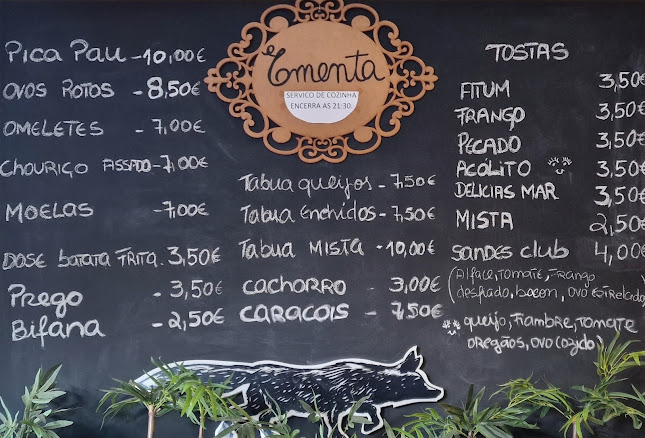 Ementa
SERVIÇO DE COZINHA
ENCERRA AS 21:30.
PICA PAU - 10,00€
OVOS ROTOS - 8,50€
OMELETES - 7,00€
CHOURIÇO ASSADO - 7,00€
MOELAS - 7,00€
DOSE BATATA FRITA. 3,50€
Prego - 3,50€
Bifana - 2,50€
Tabua queijos - 7,50€
Tabua Enchidos - 7,50€
Tabua MISTA - 10,00€
CACHORRO - 3,00€
CARACOIS - 7,50€
TOSTAS
ATUM 3,50€
FRANGO 3,50€
PECADO 3,50€
ACÓLITO 3,50€
DELICIAS MAR 3,50€
MISTA 2,50€
SANDES CLUB 4,00€
(Alface, tomate, frango
desfiado, bacon, ovo estrelado)
queijo, fiambre, tomate
oregãos, ovo (cozido)